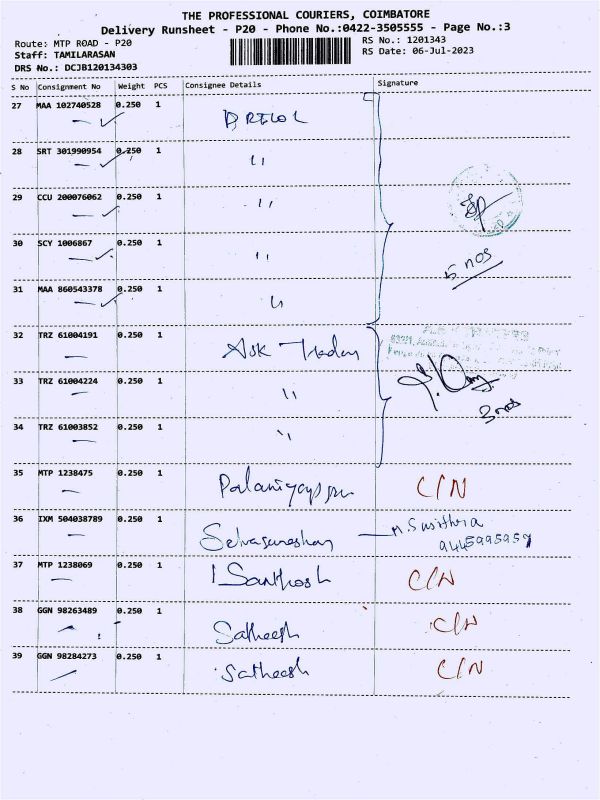 THE PROFESSIONAL COURIERS, COIMBATORE
Delivery Runsheet - P20 - Phone No.:0422-3505555 - Page No.:3
Route: MTP ROAD - P20
RS No.: 1201343
Staff: TAMILARASAN
RS Date: 06-Jul-2023
DRS No.: DCJB120134303
S No Consignment No Weight PCS Consignee Details Signature
27 MAA 102740528 0.250 1
28 SRT 301990954 0.250 1 "
29 CCU 200076062 0.250 1 "
30 SCY 1006867 0.250 1 "
5 nos
31 MAA 860543378 0.250 1 "
32 TRZ 61004191 0.250 1 Ask
33 TRZ 61004224 0.250 1 "
3 nos
34 TRZ 61003852 0.250 1 "
35 MTP 1238475 0.250 1 C/N
36 IXM 504038789 0.250 1 M. Susithra
9445995959
37 MTP 1238069 0.250 1 Santhosh C/N
38 GGN 98263489 0.250 1 Satheesh C/N
39 GGN 98284273 0.250 1 Satheesh C/N